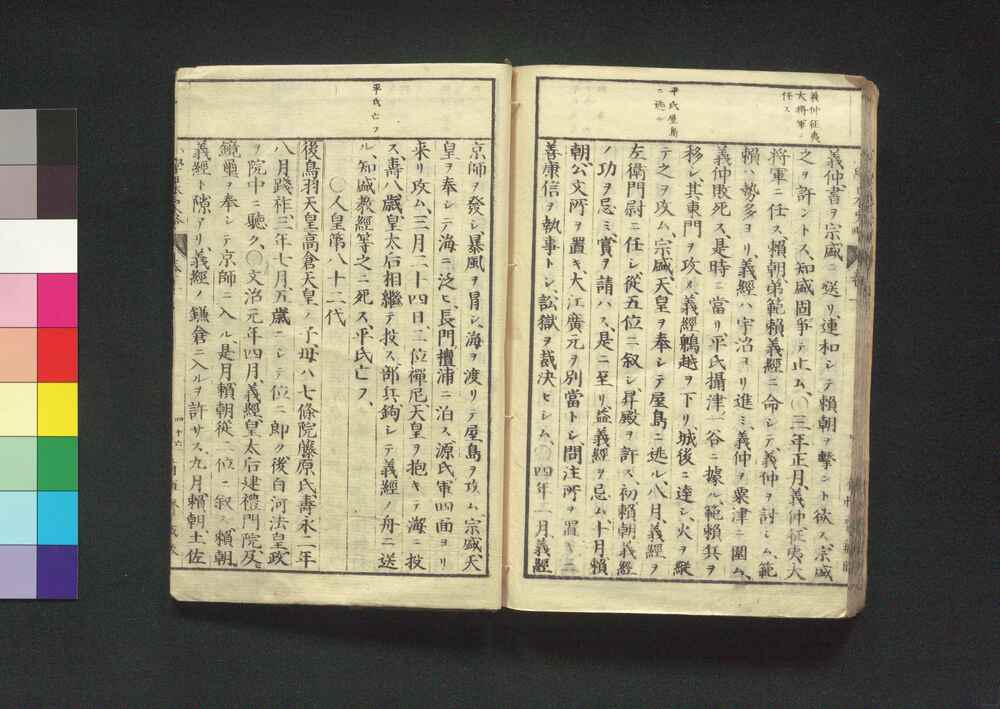 義仲征夷
大將軍ニ
任ス
平氏屋島
ニ逃ル
義仲書ヲ宗盛ニ送リ連和シテ賴朝ヲ擊ント欲ス宗盛
之ヲ許ントス、知盛固爭テ止ム、〇三年正月、義仲征夷大
將軍ニ任ス、賴朝弟範賴義經ニ命シテ義仲ヲ討シム、範
賴ハ勢多ヨリ、義經ハ宇治ヨリ進ミ義仲ヲ粟津ニ圍ム、
義仲敗死ス、是時ニ當リ平氏攝津一谷ニ據ル、範賴兵ヲ
移シ、其東門ヲ攻メ義經鵯越ヲ下リ、城後ニ達シ、火ヲ縱
テ之ヲ攻ム、宗盛天皇ヲ奉シテ屋島ニ逃ル、八月、義經ヲ
左衞門尉ニ任シ從五位ニ叙シ昇殿ヲ許ス、初賴朝義經
ノ功ヲ忌ミ、賞ヲ請ハス、是ニ至リ益義經ヲ忌ム、十月、賴
朝公文所ヲ置キ、大江廣元ヲ別當トシ、問注所ヲ置キ三
善康信ヲ執事トシ、訟獄ヲ裁決セシム、〇四年二月、義經
平氏亡フ
京師ヲ發シ、暴風ヲ冒シ、海ヲ渡リテ屋島ヲ攻ム、宗盛、天
皇ヲ奉シテ海ニ泛ヒ、長門、壇浦ニ泊ス、源氏軍四面ヨリ
来リ攻ム、三月二十四日、二位禪尼天皇ヲ抱キテ海ニ投
ス、壽八歲、皇太后相繼テ投ス、部兵、鉤シテ義經ノ舟ニ送
ル、知盛教經等之ニ死ス、平氏亡フ、
〇人皇第八十二代
後鳥羽天皇高倉天皇ノ子、母ハ七條院藤原氏、壽永二年
八月踐祚三年七月、五歲ニシテ位ニ即ク後白河法皇、政
ヲ院中ニ聽ク、〇文治元年四月、義經皇太后建禮門院及
鏡璽ヲ奉シテ京師ニ入ル、是月賴朝從二位ニ叙ス、賴朝、
義經ト隙アリ、義經ノ鎌倉ニ入ルヲ許サス、九月賴朝土佐
四十六